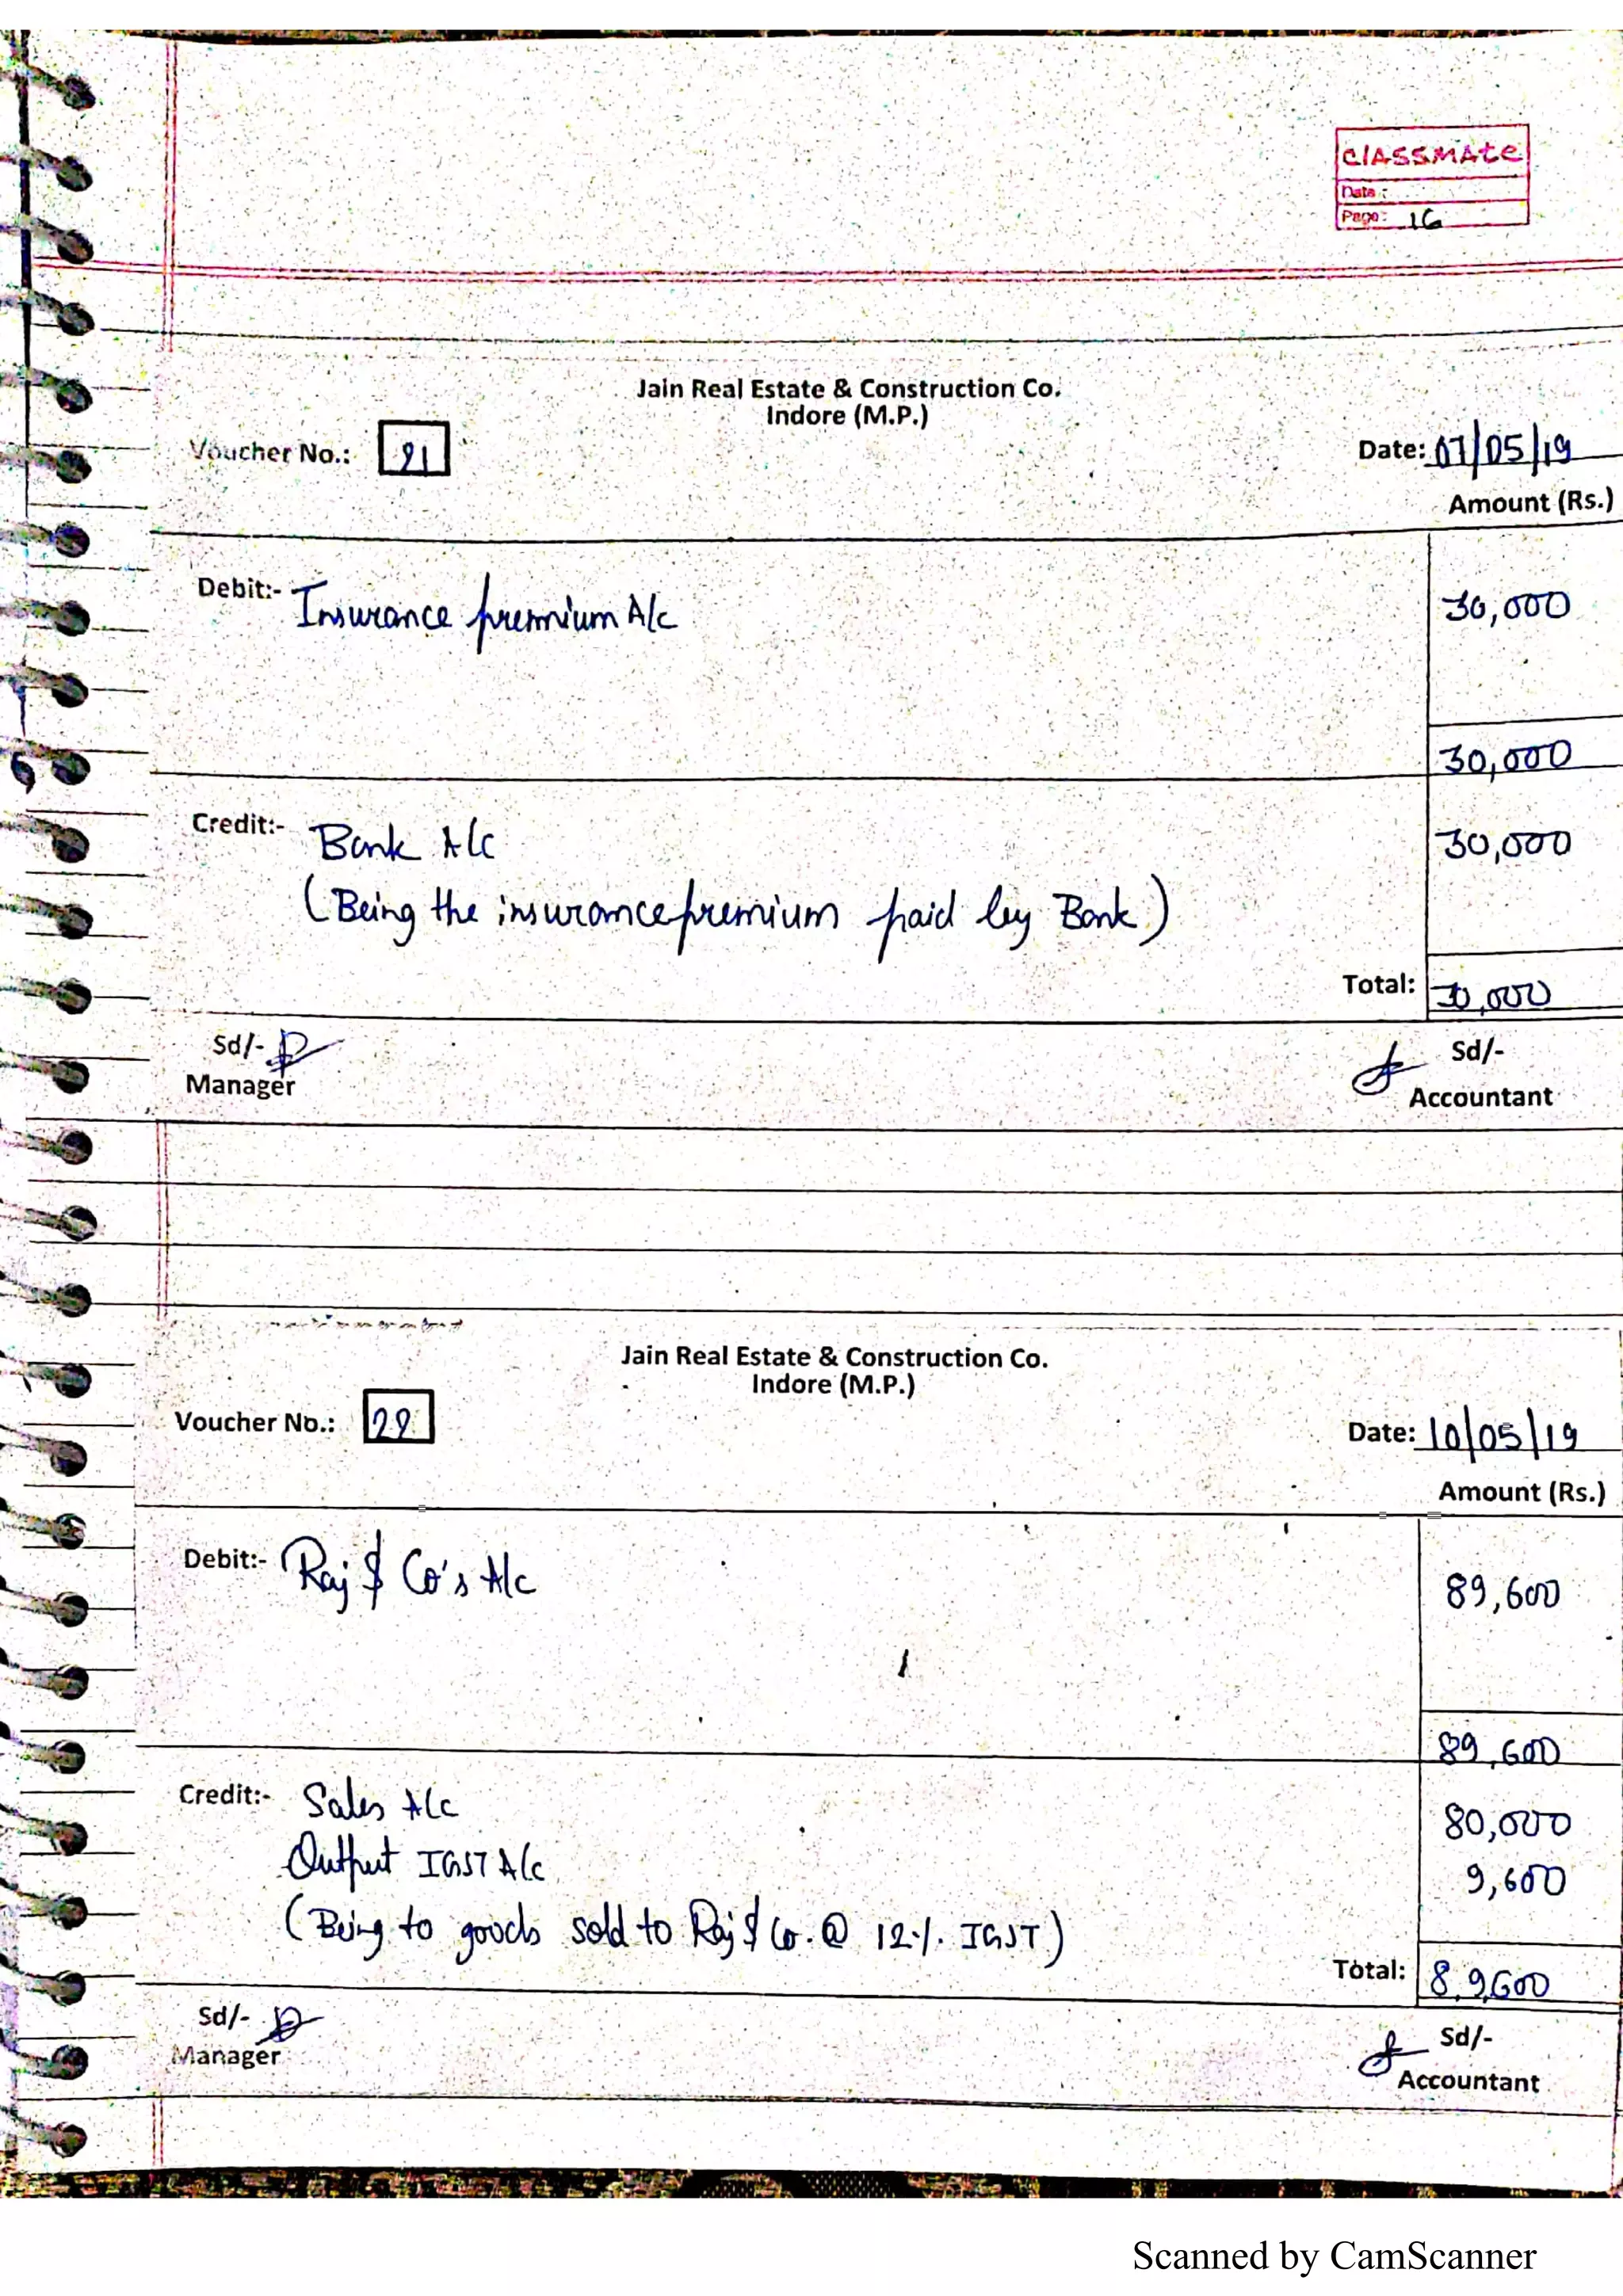 classmate
Date :
Page: 16
Jain Real Estate & Construction Co.
Indore (M.P.)
Voucher No.: 21
Date: 07/05/19
Amount (Rs.)
Debit:- Insurance premium A/c 30,000
30,000
Credit:- Bank A/c 30,000
(Being the insurance premium paid by Bank)
Total: 30,000
Sd/- Sd/-
Manager Accountant
Jain Real Estate & Construction Co.
Indore (M.P.)
Voucher No.: 22
Date: 10/05/19
Amount (Rs.)
Debit:- Raj & Co's A/c 89,600
89,600
Credit:- Sales A/c 80,000
Output IGST A/c 9,600
(Being to goods sold to Raj & Co. @ 12%. IGST)
Total: 8,9600
Sd/- Sd/-
Manager Accountant
Scanned by CamScanner